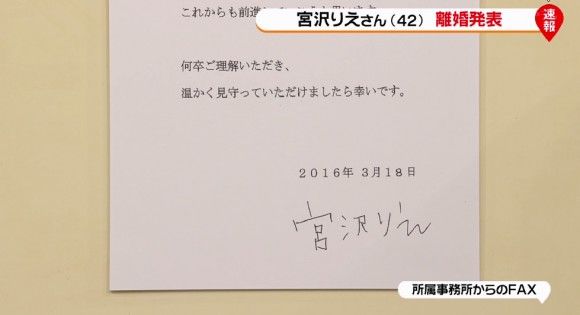 宮沢りえさん(42) 離婚発表
速報
これからも前進
何卒ご理解いただき、
温かく見守っていただけましたら幸いです。
2016年 3月18日
宮沢りえ
所属事務所からのFAX